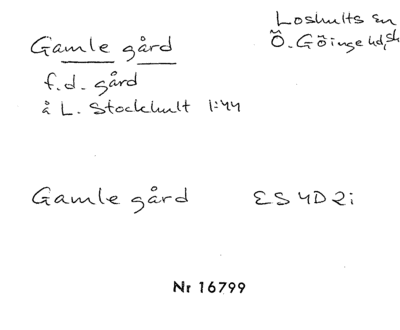 Loshults sn
Gamle gård
Ö. Göinge hd, sk
f.d. gård
å L. Stockhult 1:44
Gamle gård ES 4D 2i
Nr 16799